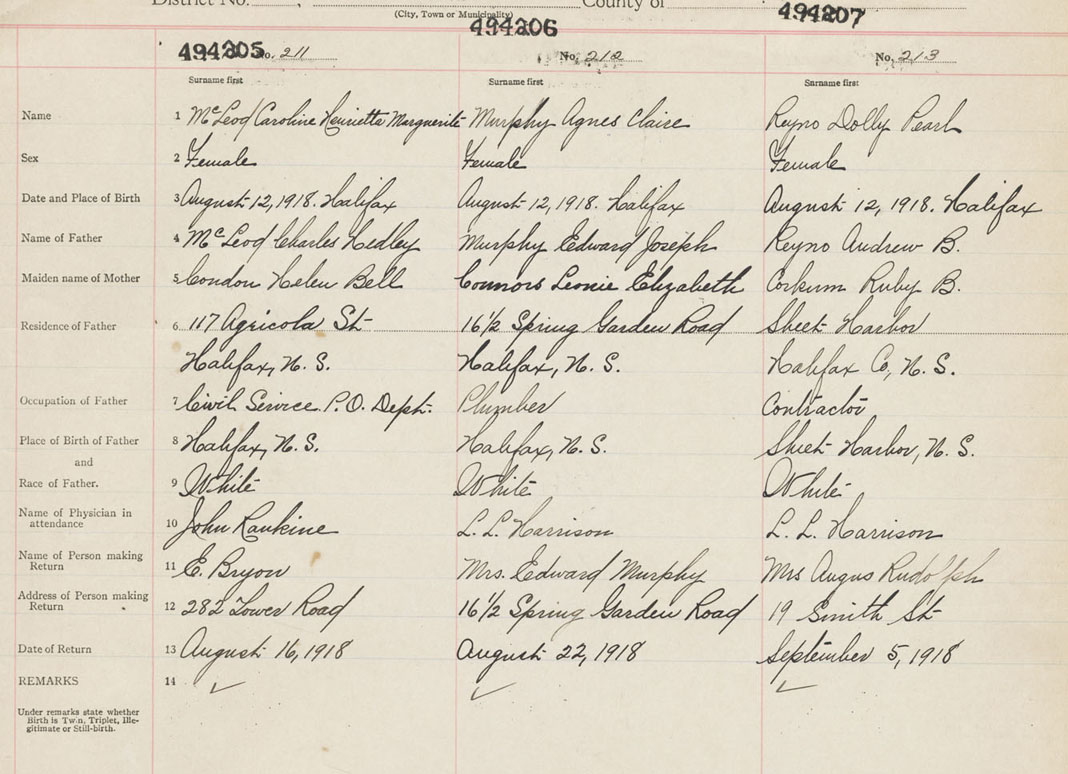 District No.          County of
(City, Town or Municipality)
494205 No. 211   494206 No. 212   494207 No. 213
Surname first   Surname first   Surname first
Name 1 McLeod Caroline Henrietta Marguerite   Murphy Agnes Claire   Reyno Dolly Pearl
Sex 2 Female   Female   Female
Date and Place of Birth 3 August 12, 1918. Halifax   August 12, 1918. Halifax   August 12, 1918. Halifax
Name of Father 4 McLeod Charles Hedley   Murphy Edward Joseph   Reyno Andrew B.
Maiden name of Mother 5 Condon Helen Bell   Connors Leonie Elizabeth   Corkum Ruby B.
Residence of Father 6 117 Agricola St   16 1/2 Spring Garden Road   Sheet Harbor
Halifax, N. S.   Halifax, N. S.   Halifax Co, N. S.
Occupation of Father 7 Civil Service P. O. Dept.   Plumber   Contractor
Place of Birth of Father 8 Halifax, N. S.   Halifax, N. S.   Sheet Harbor, N. S.
and
Race of Father. 9 White   White   White
Name of Physician in
attendance 10 John Rankine   L. L. Harrison   L. L. Harrison
Name of Person making
Return 11 E. Bryon   Mrs. Edward Murphy   Mrs Angus Rudolph
Address of Person making
Return 12 282 Tower Road   16 1/2 Spring Garden Road   19 Smith St
Date of Return 13 August 16, 1918   August 22, 1918   September 5, 1918
REMARKS 14
Under remarks state whether
Birth is Twin, Triplet, Ille-
gitimate or Still-birth.